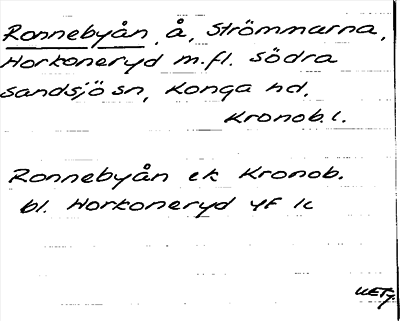 Ronnebyån, å, Strömmarna,
Horkoneryd m.fl. södra
sandsjö sn, Konga hd,
Kronob. l.
Ronnebyån ek Kronob.
bl. Horkoneryd yf lc